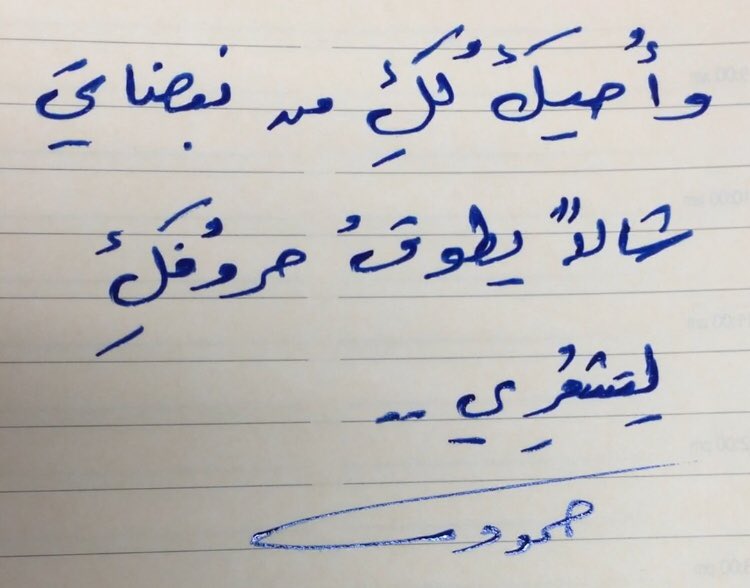 وأُحيكُ لُكِ من نبضاتي
شالاً يطوقُ حروُفكِ
لِتشعُرِي ..